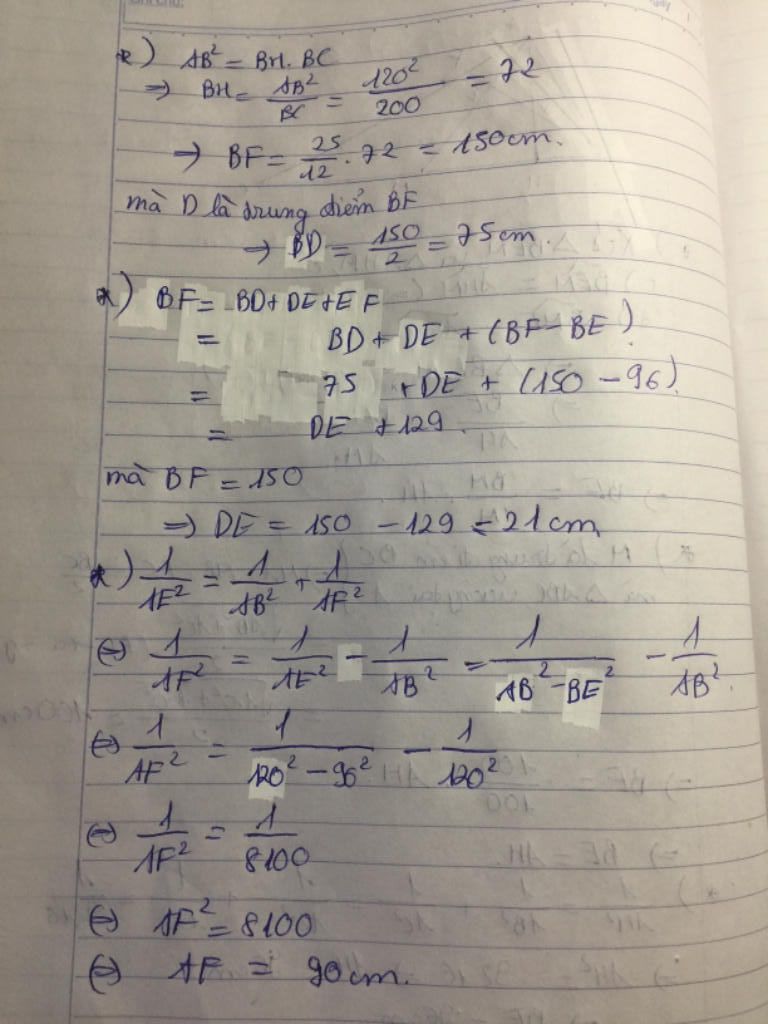 *) AB² = BH. BC
=> BH = AB²/BC = 120²/200 = 72
=> BF = 25/12 . 72 = 150cm.
mà D là trung điểm BF
=> BD = 150/2 = 75cm.
*) BF = BD + DE + EF
= BD + DE + (BF - BE)
= 75 + DE + (150 - 96)
= DE + 129.
mà BF = 150
=> DE = 150 - 129 = 21cm
*) 1/AE² = 1/AB² + 1/AF²
(=) 1/AF² = 1/AE² - 1/AB² = 1/AB² - BE² - 1/AB².
(=) 1/AF² = 1/120² - 96² - 1/120²
(=) 1/AF² = 1/8100
(=) AF² = 8100
(=) AF = 90cm.